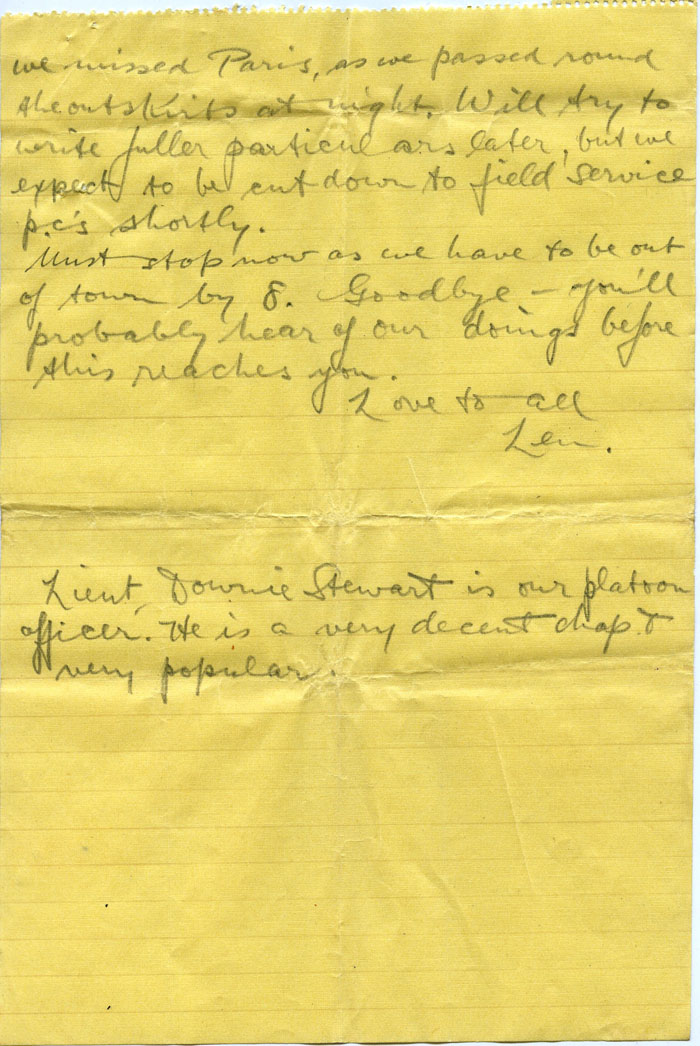 we missed Paris, as we passed round
the outskirts at night. Will try to
write fuller particulars later, but we
expect to be cut down to field service
p.c's shortly.
Must stop now as we have to be out
of town by 8. Goodbye – you'll
probably hear of our doings before
this reaches you.
Love to all
Len.
Lieut. Downie Stewart is our platoon
officer. He is a very decent chap &
very popular.